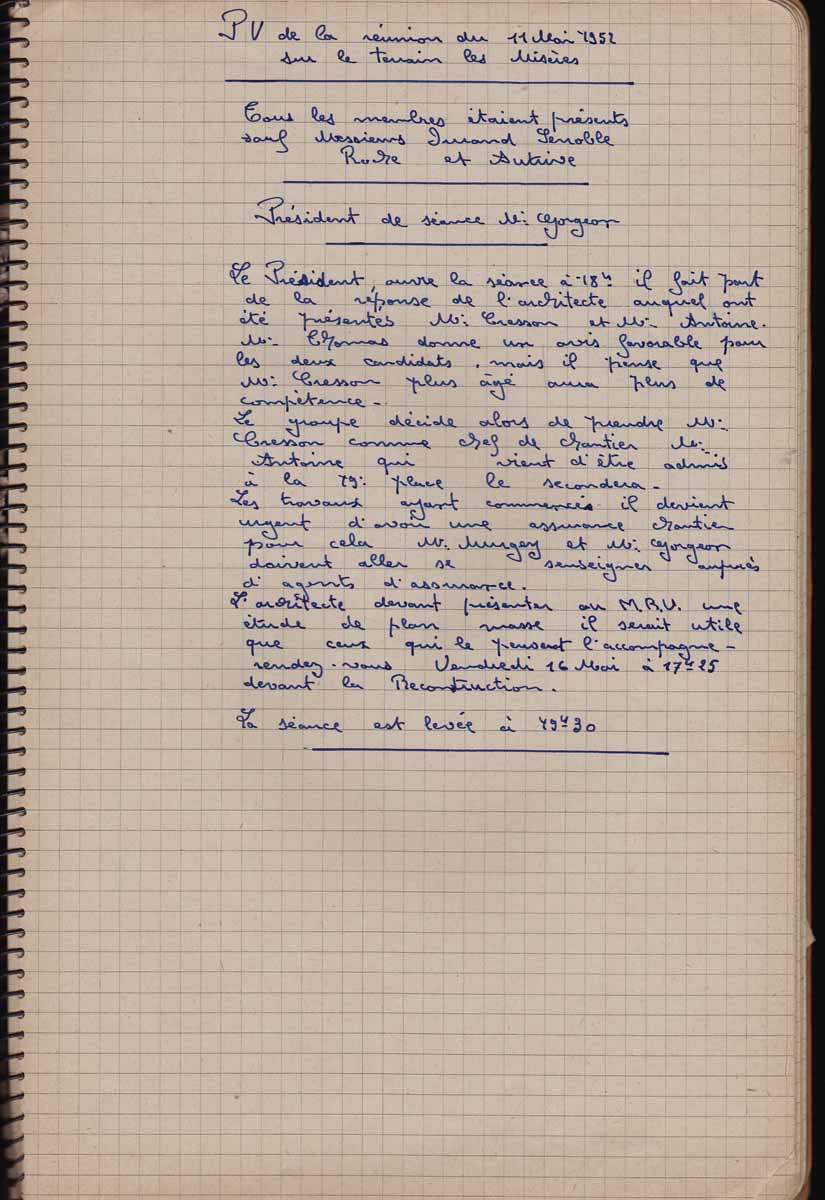 PV de la réunion du 11 Mai 1952
sur le terrain les Misères
Tous les membres étaient présents
sauf Messieurs Durand Lenoble
Roche et
Président de séance Mr: Gorgeon
Le Président, ouvre la séance à 18h il fait part
de la réponse de l'architecte auquel ont
été présentés Mr: Cresson et Mr: Antoine.
Mr: Thomas donne un avis favorable pour
les deux candidats, mais il pense que
Mr: Cresson plus âgé aura plus de
compétence -
Le groupe décide alors de prendre Mr:
Cresson comme chef de chantier Mr:
Antoine qui vient d'être admis
à la 19: place le secondera -
Les travaux ayant commencés il devient
urgent d'avoir une assurance chantier
pour cela Mr: Murgey et Mr: Gorgeon
doivent aller se renseigner auprès
d'agents d'assurance.
L'architecte devant présenter au M.R.U. une
étude de plan masse il serait utile
que ceux qui le peuvent l'accompagne -
rendez-vous Vendredi 16 Mai à 17h25
devant la Reconstruction.
La séance est levée à 19h30